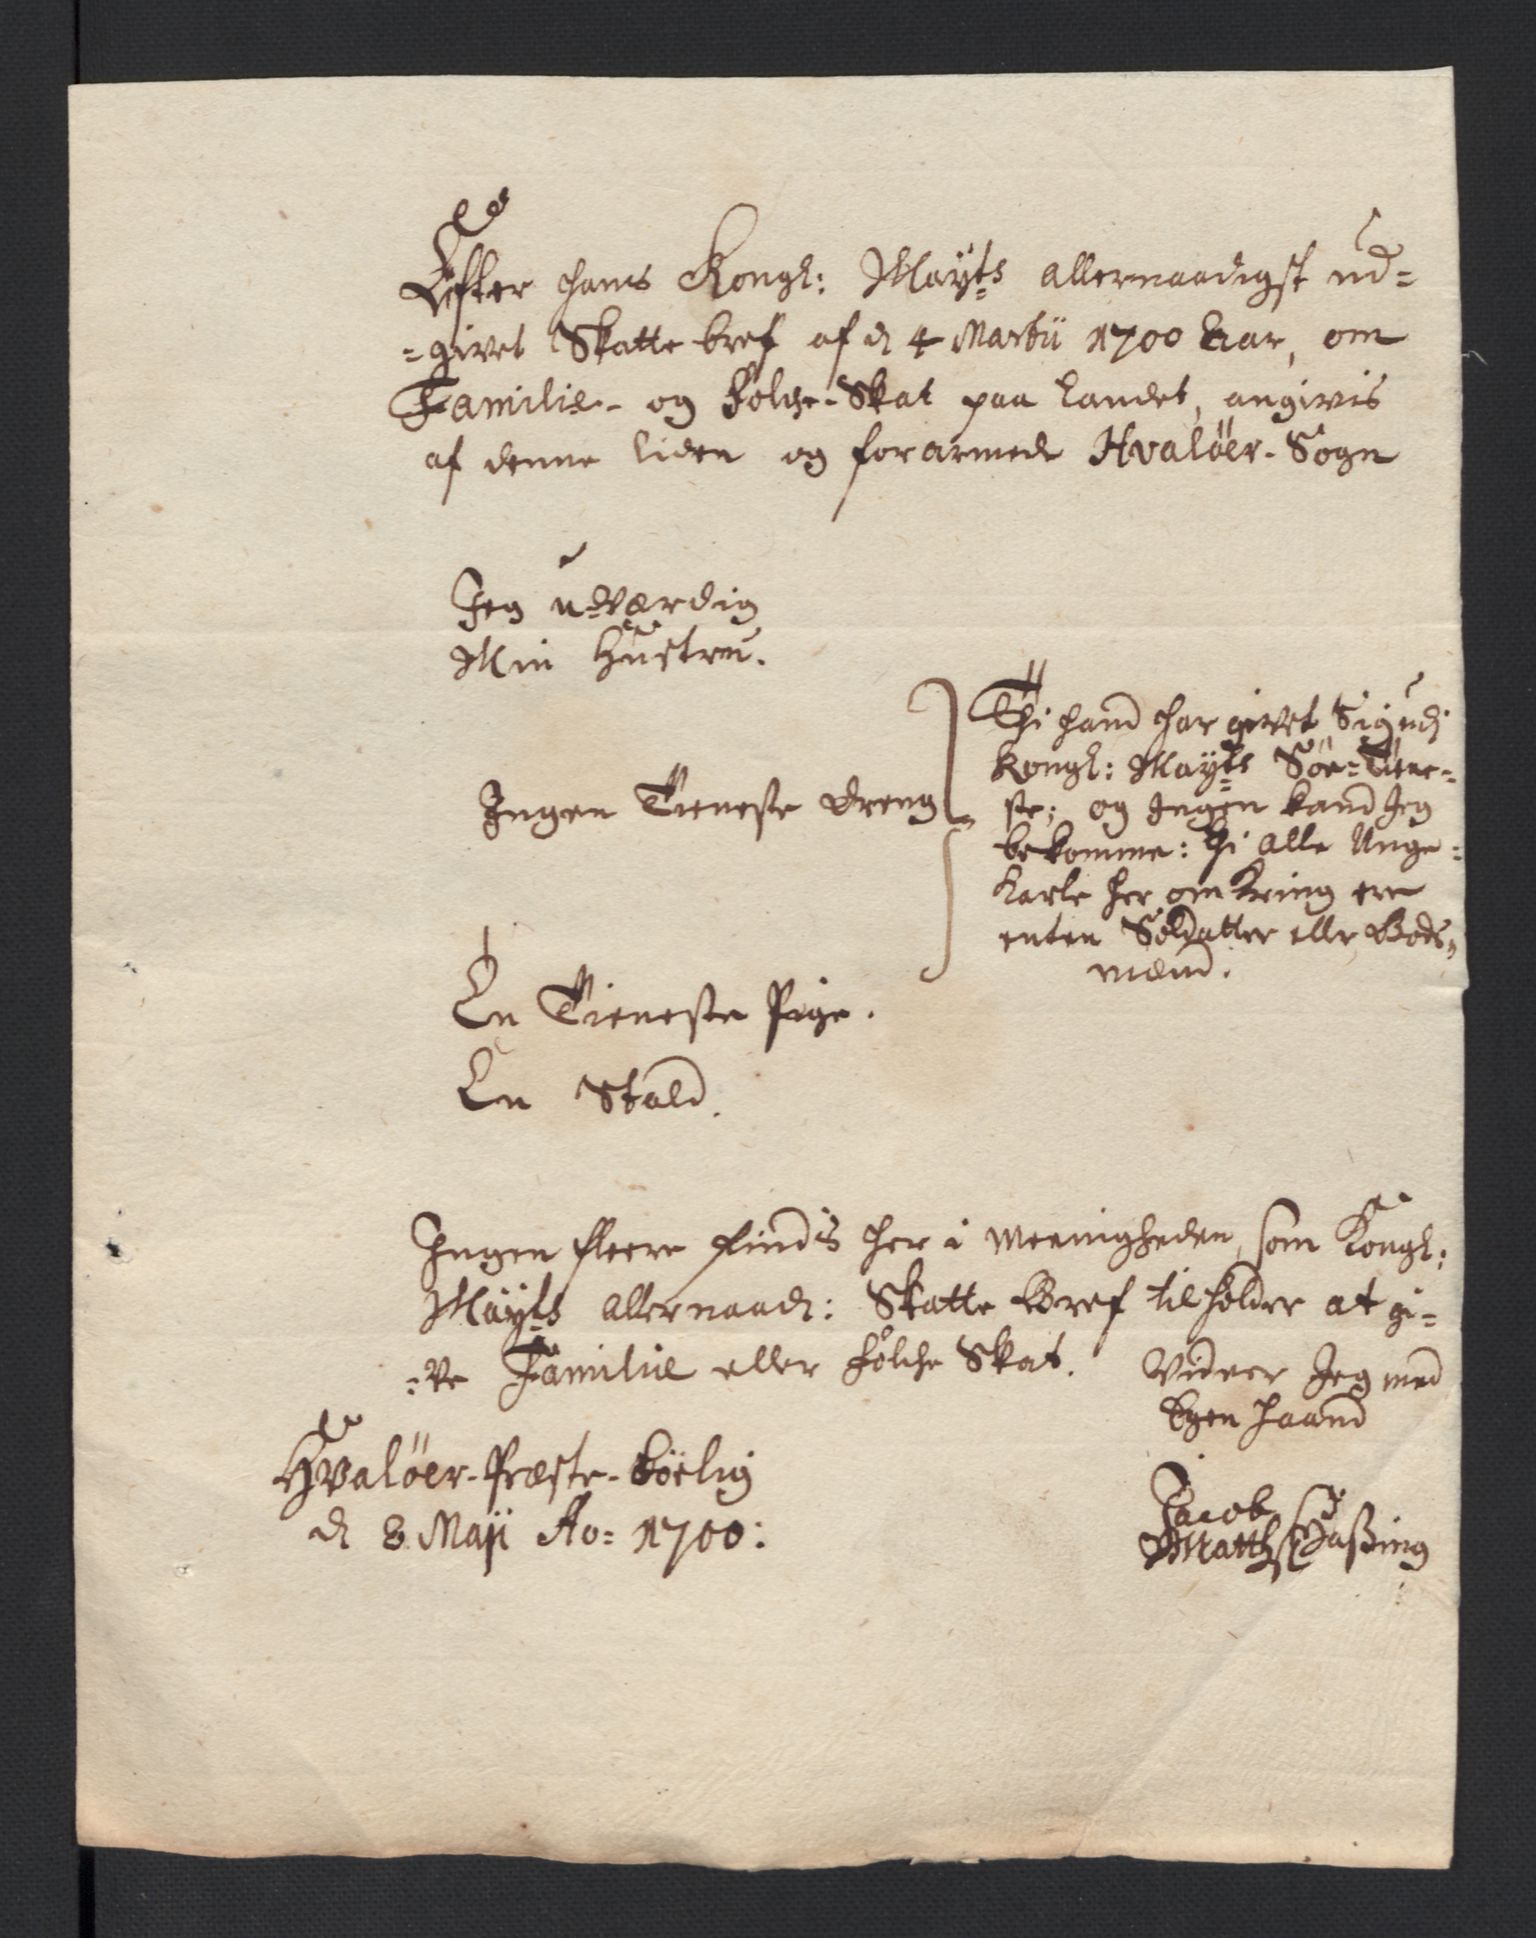 Efter hans Kongl: Mayts allernaadigst ud=
=givet Skatte bref af d 4 Martii 1700 Aar, om
Familie- og Folche-Skat paa Landet, angivis
af denne liden og forarmede Hvalöer-Sogn
Jeg uværdig
Min Hustru.
Ingen Tieneste dreng
Thi hand har givet Sig udj
Kongl: Mayts Söe-Tiene-
ste; og Ingen kand Jeg
bekomme: thi alle Unge=
karle her omkring ere
enten Soldatter eller Bods-
mænd.
En Tieneste Pige.
En Stald.
Ingen fleere findis her i Meenigheden, som Kongl:
Mayts allernaad: Skatte Bref tilholder at gi=
=ve Familie eller folche Skat.
Vidner Jeg med
Egen haand
Hvalöer-Præste-Böelig
d 8 Maji Ao= 1700:
Jacob
Matthß Haßing